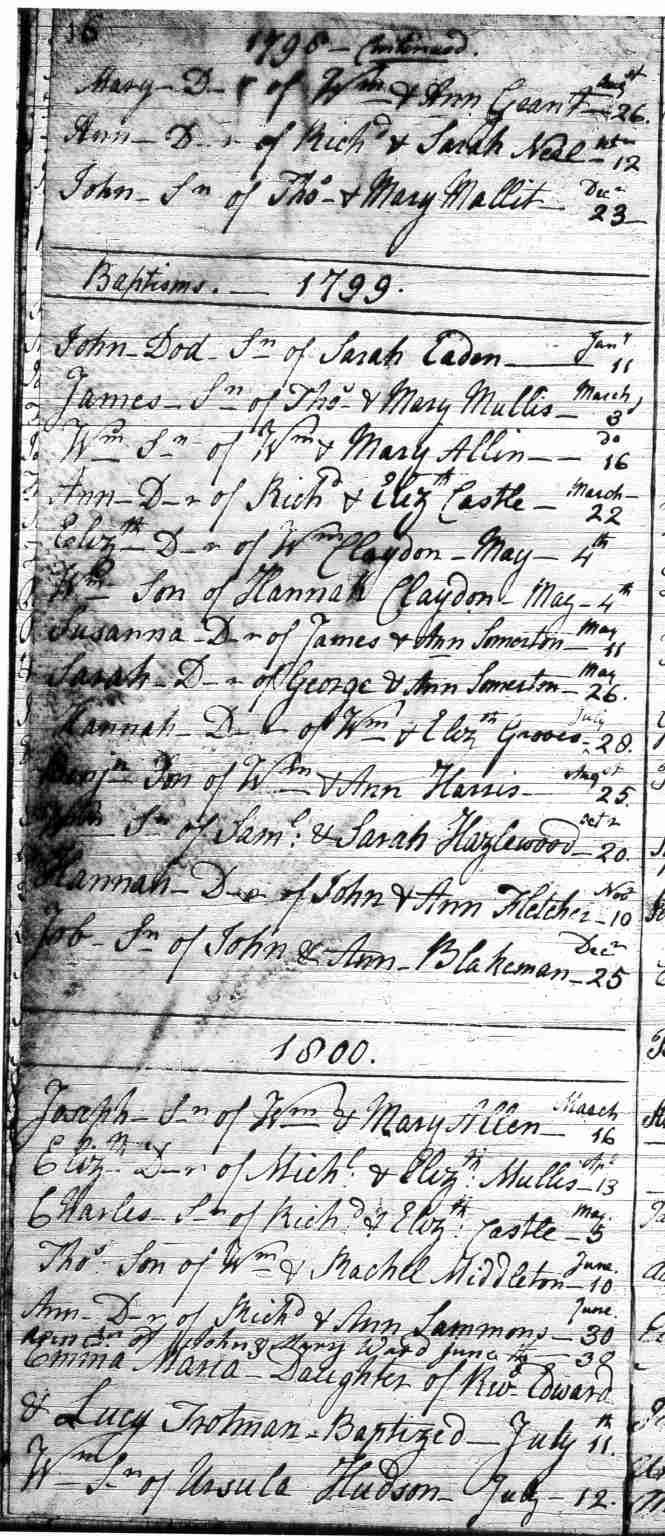 16
1798 - Continued.
Mary - D - r of Wm & Ann Grant - Augst 26.
Ann - D - r of Richd & Sarah Neal - 12
John - Sn of Thos & Mary Mallit Decr 23
Baptisms. - 1799.
John - Dod - Sn of Sarah Eaden - Jany 11
James - Sn of Thos & Mary Mullis - March 3
Wm Sn of Wm & Mary Allin - - Do 16
Ann - D - r of Richd & Elizth Castle - March 22
Elizth - D - r of Wm Claydon - May - 4th
Wm Son of Hannah Claydon - May - 4th
Susanna - D - r of James & Ann Somerton - May 11
Sarah - D - r of George & Ann Somerton - May 26.
Hannah - D - r of Wm & Elizth Groves - July 28.
Benjn Son of Wm & Ann Harris - Augst 25.
Sn of Saml. & Sarah Hazlewood - Octr 20.
Hannah - D - r of John & Ann Fletcher - Novr 10
Job - Sn of John & Ann - Blakeman - Decr 25
1800.
Joseph - Sn of Wm & Mary Allen - March 16
Elizth D - r of Michl. & Elizth. Mullis - Apl 13
Charles - Sn of Richd & Elizth. Castle - May 5
Thos Son of Wm & Rachel Middleton - June. 10
Ann - D - r of Richd & Ann Sammons - June. 30
Sn of John & Mary Ward June 30
Emma Maria - Daughter of Revd Edward
& Lucy Trotman - Baptized - July 11th.
Wm Sn of Ursula Hudson - July - 12.